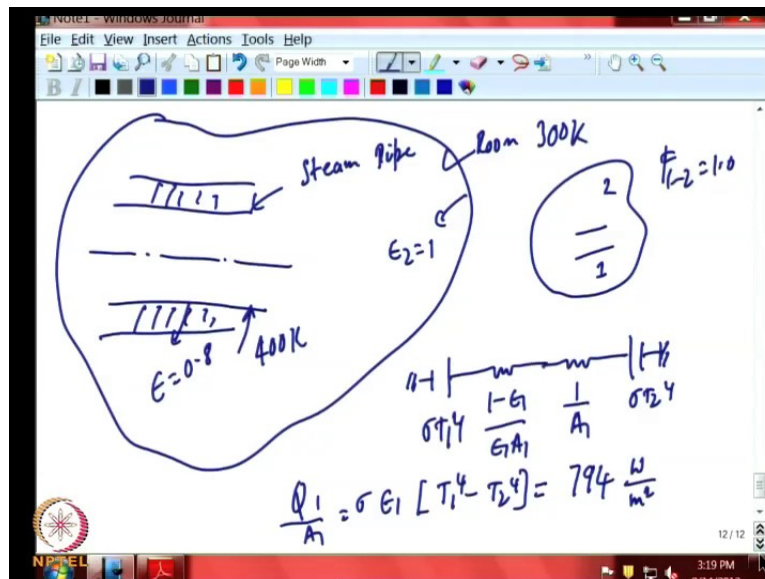 Note1 - Windows Journal
File Edit View Insert Actions Tools Help
Page Width
B I
Steam Pipe
Room 300K
F1-2 = 1.0
2
1
ϵ2 = 1
ϵ = 0.8
400K
σT1^4
1-ϵ1
ϵ1A1
1
A1
σT2^4
Q1/A1 = σ ϵ1 [T1^4 - T2^4] = 794 W/m²
12 / 12
NPTEL
3:19 PM